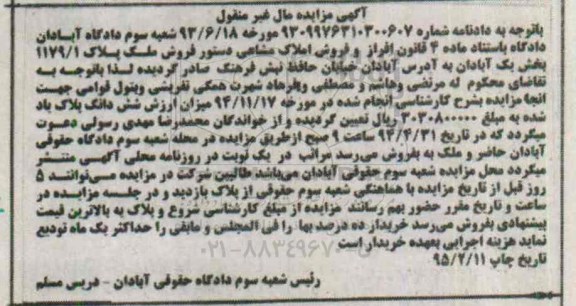 آگهی مزایده مال غیر منقول
باتوجه به دادنامه شماره ۹۳۰۹۹۷۶۳۱۰۳۰۰۶۰۷ مورخه ۹۳/۶/۱۸ شعبه سوم دادگاه آبادان
دادگاه باستناد ماده ۴ قانون افراز و فروش املاک مشاعی دستور فروش ملک پلاک ۱۱۷۹/۱
بخش یک آبادان به آدرس آبادان خیابان حافظ نبش فرهنگ صادر گردیده لذا باتوجه به
تقاضای محکوم له مرتضی وهاشم و مصطفی وفرهاد شهرت همگی تفریشی وبتول قوامی جهت
انجا مزایده بشرح کارشناسی انجام شده در مورخه ۹۴/۱۱/۱۷ میزان ارزش شش دانگ پلاک یاد
شده به مبلغ ۳۰۳۰۸۰۰۰۰۰ ریال تعیین گردیده و از خواندگان محمدرضا مهدی رسولی دعوت
میگردد که در تاریخ ۹۴/۴/۳۱ ساعت ۹ صبح ازطریق مزایده در محله شعبه سوم دادگاه حقوقی
آبادان حاضر و ملک به بفروش می‌رسد مراتب در یک نوبت در روزنامه محلی آگهی منتشر
میگردد محل مزایده شعبه سوم حقوقی آبادان می‌باشد طالبین شرکت در مزایده می‌توانند ۵
روز قبل از تاریخ مزایده با هماهنگی شعبه سوم حقوقی از پلاک بازدید و در جلسه مزایده در
ساعت و تاریخ مقرر حضور بهم رسانند مزایده از مبلغ کارشناسی شروع و پلاک به بالاترین قیمت
پیشنهادی بفروش می‌رسد خریدار ده درصد بها را فی المجلس و مابقی را حداکثر یک ماه تودیع
نماید هزینه اجرایی بعهده خریدار است
تاریخ چاپ ۹۵/۲/۱۱
۰۲۱-۸۸۳۴۹۶۷۰
رئیس شعبه سوم دادگاه حقوقی آبادان - دریس مسلم